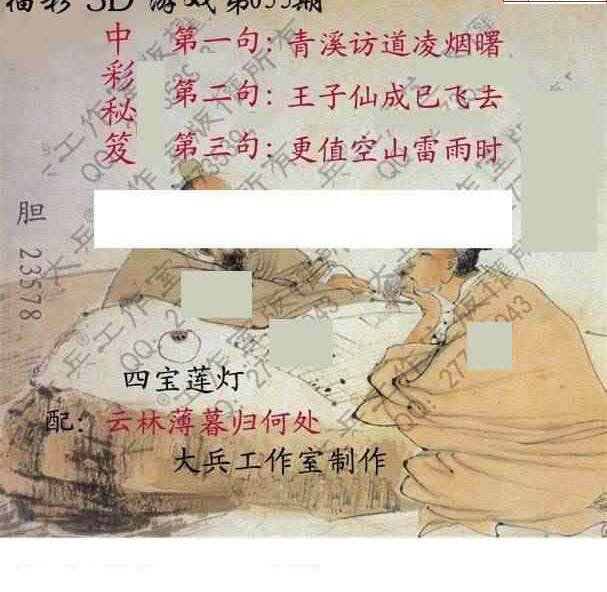 福彩 3D 游戏 第055期
中彩秘笈
第一句: 青溪访道凌烟曙
第二句: 王子仙成已飞去
第三句: 更值空山雷雨时
胆 23578
四宝莲灯
配: 云林薄暮归何处
大兵工作室制作